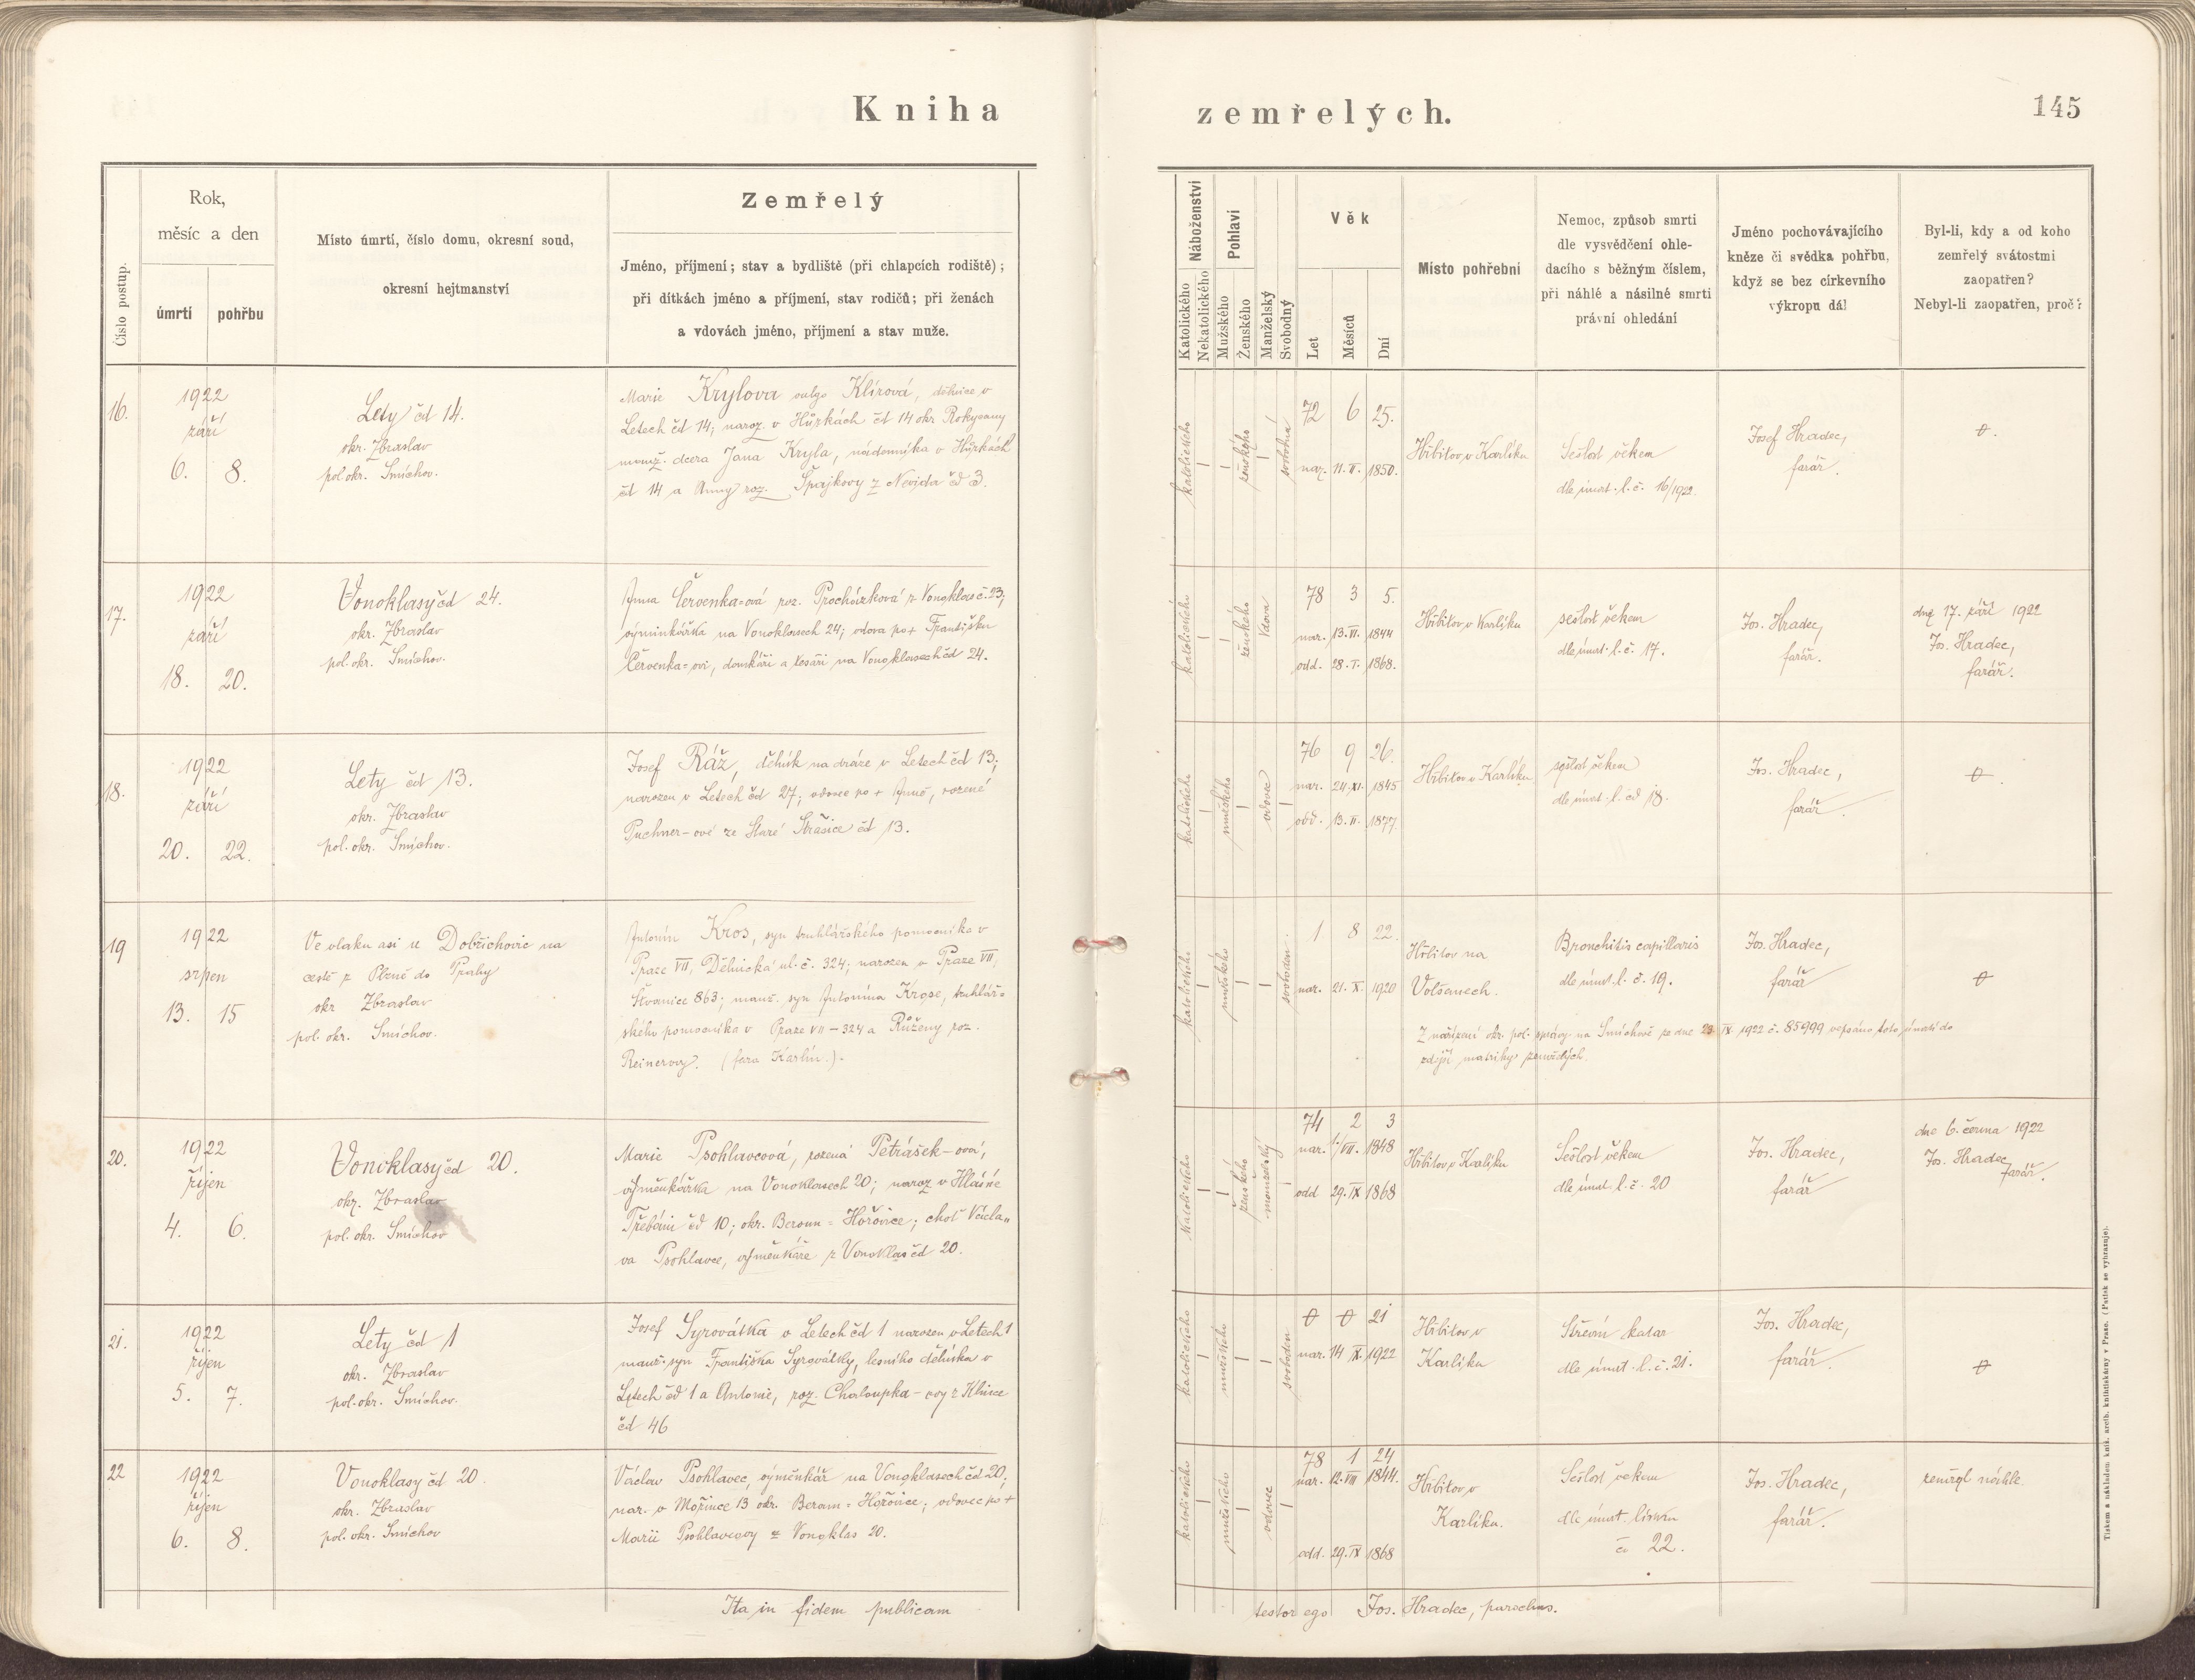 Kniha
zemřelých.
145
Číslo postup.
Rok,
měsíc a den
úmrtí
pohřbu
Místo úmrtí, číslo domu, okresní soud,
okresní hejtmanství
Zemřelý
Jméno, příjmení; stav a bydliště (při chlapcích rodiště);
při dítkách jméno a příjmení, stav rodičů; při ženách
a vdovách jméno, příjmení a stav muže.
Náboženství
Katolického
Nekatolického
Pohlaví
Mužského
Ženského
Manželský
Svobodný
Věk
Let
Měsíců
Dní
Místo pohřební
Nemoc, způsob smrti
dle vysvědčení ohle-
dacího s běžným číslem,
při náhlé a násilné smrti
právní ohledání
Jméno pochovávajícího
kněze či svědka pohřbu,
když se bez církevního
výkropu dál
Byl-li, kdy a od koho
zemřelý svátostmi
zaopatřen?
Nebyl-li zaopatřen, proč?
16.
1922
září
6. 8.
Lety čd 14.
okr. Zbraslav
pol. okr. Smíchov.
Marie Krylova vulgo Klírová, dělnice v
Letech čd 14; naroz. v Hůrkách čd 14 okr. Rokycany
manž. dcera Jana Kryla, nádenníka v Hůrkách
čd 14 a Anny roz. Špajkovy z Nevida čd 3.
katolického
ženského
svobodná
72 6 25.
nar. 11. II. 1850.
Hřbitov v Karlíku
Sešlost věkem
dle úmrt. l. č. 16/1922.
Josef Hradec,
farář.
0.
17.
1922
září
18. 20.
Vonoklasy čd 24.
okr. Zbraslav
pol. okr. Smíchov.
Anna Červenka=ová roz. Procházková z Vonoklas č. 23;
výminkářka na Vonoklasech 24; vdova po + Františku
Červenka=ovi, domkáři a tesaři na Vonoklasech čd 24.
katolického
ženského
vdova
78 3 5.
nar. 13. VI. 1844
odd. 28. I. 1868.
Hřbitov v Karlíku
sešlost věkem
dle úmrt. l. č. 17.
Jos. Hradec,
farář.
dne 17. září 1922
Jos. Hradec,
farář.
18.
1922
září
20. 22.
Lety čd 13.
okr. Zbraslav
pol. okr. Smíchov.
Josef Ráž, dělník na dráze v Letech čd 13;
narozen v Letech čd 27; vdovec po + Anně, rozené
Puchner-ové ze Staré Strašice čd 13.
katolického
mužského
vdovec
76 9 26.
nar. 24. XI. 1845
odd. 13. II. 1877.
Hřbitov v Karlíku
sešlost věkem
dle úmrt. l. čd 18.
Jos. Hradec,
farář.
0.
19
1922
srpen
13. 15
Ve vlaku asi u Dobřichovic na
cestě z Plzně do Prahy
okr Zbraslav
pol. okr. Smíchov.
Antonín Kros, syn truhlářského pomocníka v
Praze VII, Dělnická ul. č. 324; narozen v Praze VII,
Štvanice 863; manž. syn Antonína Krose, truhlář=
ského pomocníka v Praze VII - 324 a Růženy, roz.
Reinerovy. (fara Karlín.).
katolického
mužského
svoboden.
1 8 22.
nar. 21. X. 1920
Hřbitov na
Volšanech.
Bronchitis capillaris
dle úmrt. l. č. 19.
Jos. Hradec,
farář
0
Z nařízení okr. pol. správy na Smíchově ze dne 23. IX. 1922 č. 85999 vepsáno toto úmrtí do
zdejší matriky zemřelých.
20.
1922
říjen
4. 6.
Vonoklasy čd 20.
okr. Zbraslav
pol. okr. Smíchov
Marie Psohlavcová, rozená Petrášek-ová,
výměnkářka na Vonoklasech 20; naroz v Hlásné
Třebáni čd 10; okr. Beroun = Hořovice; choť Václa„
va Psohlavce, výměnkáře z Vonoklas čd 20.
katolického
ženského
manželský
74 2 3
nar. 1. VII. 1848
odd 29. IX 1868
Hřbitov v Karlíku
Sešlost věkem
dle úmrt. l. č. 20
Jos. Hradec,
farář
dne 6. června 1922
Jos. Hradec,
farář.
21.
1922
říjen
5. 7.
Lety čd 1
okr. Zbraslav
pol. okr. Smíchov.
Josef Syrovátka v Letech čd 1 narozen v Letech 1
manž. syn Františka Syrovátky, lesního dělníka v
Letech čd 1 a Antonie, roz. Chaloupka-ovy z Hlince
čd 46
katolického
mužského
svoboden
0 0 21
nar. 14 IX. 1922
Hřbitov v
Karlíku
Střevní katar
dle úmrt. l. č. 21.
Jos. Hradec,
farář.
0
22
1922
říjen
6. 8.
Vonoklasy čd 20.
okr. Zbraslav
pol. okr. Smíchov
Václav Psohlavec, výměnkář na Vonoklasech čd 20;
nar. v Mořince 13 okr. Beroun = Hořovice; vdovec po +
Marii Psohlavcovy z Vonoklas 20.
katolického
mužského
vdovec
78 1 24
nar. 12. VIII 1844.
odd. 29. IX 1868
Hřbitov v
Karlíku.
Sešlost věkem
dle úmrt. lístku
č. 22.
Jos. Hradec,
farář.
zemřel náhle.
Ita in fidem publicam
testor ego Jos. Hradec, parochus.
Tiskem a nákladem kníž. arcib. knihtiskárny v Praze. (Patisk se vyhrazuje).